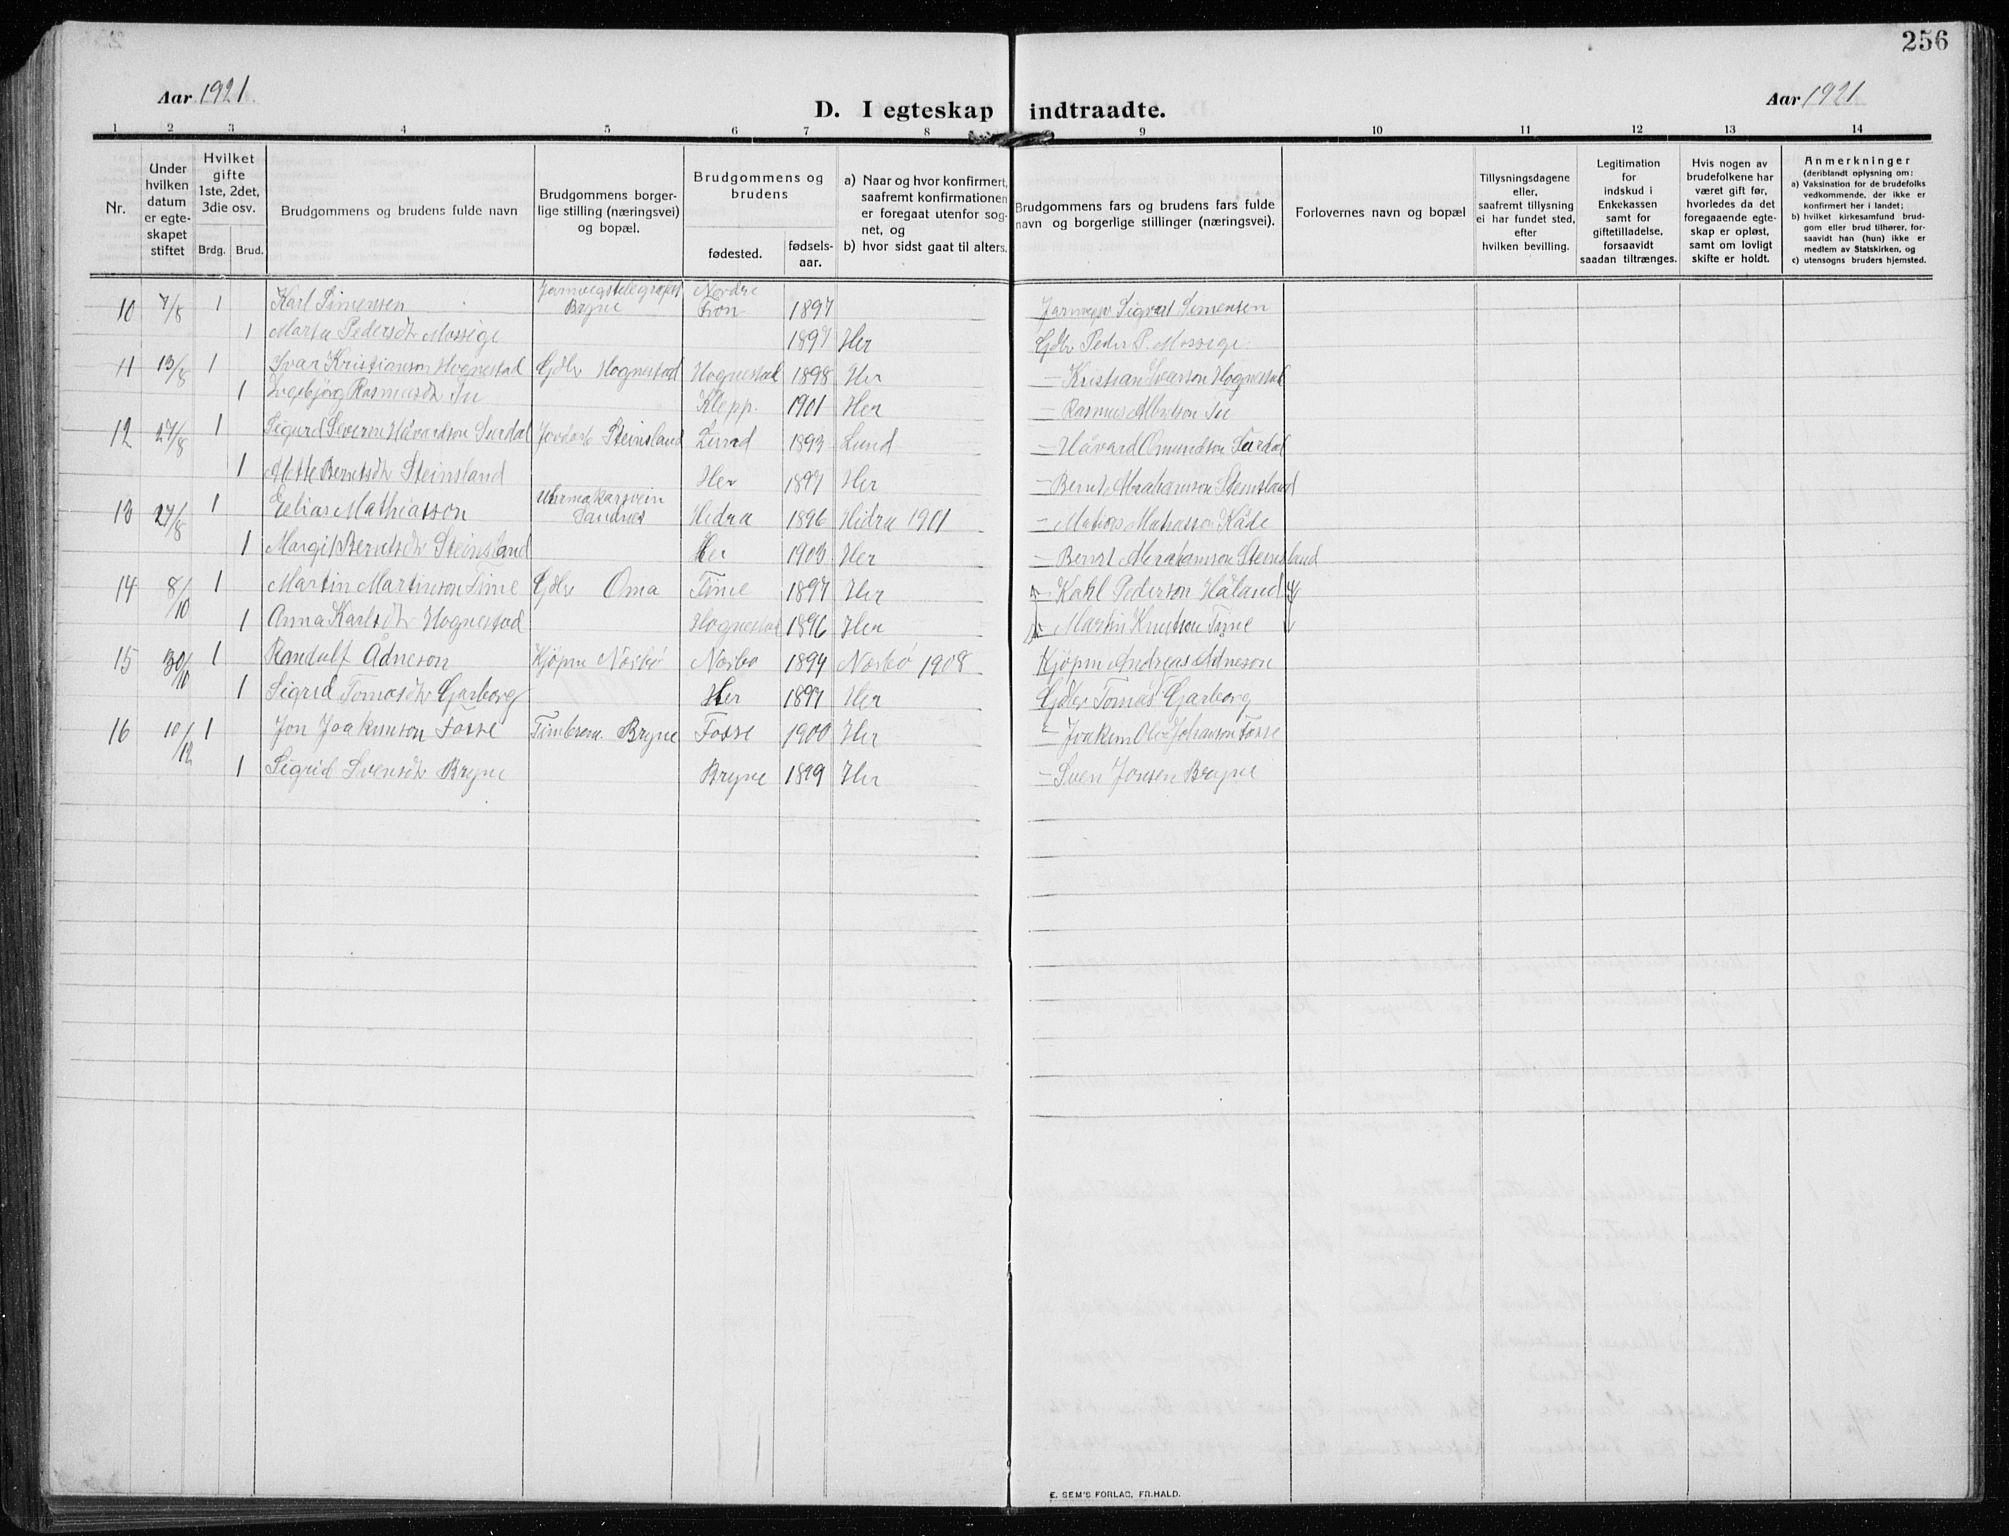 256
Aar 1921.
Aar 1921
D. I egteskap indtraadte.
1 2 3 4 5 6 7 8 9 10 11 12 13 14
Nr.
Under
hvilken
datum
er egte-
skapet
stiftet
Hvilket
gifte
1ste, 2det,
3die osv.
Brdg. Brud.
Brudgommens og brudens fulde navn
Brudgommens borger-
lige stilling (næringsvei)
og bopæl.
Brudgommens og
brudens
fødested.
fødsels-
aar.
a) Naar og hvor konfirmert,
saafremt konfirmationen
er foregaat utenfor sog-
net, og
b) hvor sidst gaat til alters.
Brudgommens fars og brudens fars fulde
navn og borgerlige stillinger (næringsvei).
Forlovernes navn og bopæl
Tillysningsdagene
eller,
saafremt tillysning
ei har fundet sted,
efter
hvilken bevilling.
Legitimation
for
indskud i
Enkekassen
samt for
giftetilladelse,
forsaavidt
saadan tiltrænges.
Hvis nogen av
brudefolkene har
været gift før,
hvorledes da det
foregaaende egte-
skap er opløst,
samt om lovligt
skifte er holdt.
Anmerkninger
(deriblandt oplysning om:
a) Vaksination for de brudefolks
vedkommende, der ikke er
konfirmert her i landet;
b) hvilket kirkesamfund brud-
gom eller brud tilhører, for-
saavidt han (hun) ikke er
medlem av Statskirken, og
c) utensogns bruders hjemsted.
10 7/8 1 Karl Simensen Jernvegstelegrafist Bryne Nordre Fron 1897 Sigvart Simensen
1 Marta Pedersdtr Mossige 1897 Her Gdbr Peder P. Mossige.
11 13/8 1 Ivar Kristianson Hognestad Gdbr Hognestad Hognestad 1898 Her — Kristian Ivarson Hognestad
1 Ingebjørg Rasmusdtr Tu Klepp. 1901 Her — Rasmus Albertson Tu
12 27/8 1 Sigurd Severin Håvardson Surdal Jordarb Steinsland Lund 1893 Lund — Håvard Omundson Surdal
1 Mette Berntsdtr Steinsland Her 1897 Her — Bernt Abrahamson Steinsland
13 27/8 1 Elias Mathiasson Uhrmakarsvein Sandnes Hidra 1896 Hidra 1901 — Matias Matiasson Kåde
1 Margit Berntsdtr Steinsland Her 1903 Her — Bernt Abrahamson Steinsland
14 8/10 1 Martin Martinson Time Gdbr Oma Time 1897 Her — Karl Pederson Håland
1 Anna Karlsdtr Hognestad Hognestad 1896 Her — Martin Knutson Time
15 30/10 1 Randulf Ådneson Kjøpm Nærbø Nærbø 1894 Nærbø 1908 Kjøpm Andreas Adneson
1 Sigrid Tomasdtr Garborg Her 1897 Her Gdbr Tomas Garborg
16 10/12 1 Jon Joakimson Fosse Timberm. Bryne Fosse 1900 Her — Joakim Ole Johanson Fosse
1 Sigrid Svensdtr Bryne Bryne 1899 Her — Sven Jonsen Bryne
E. SEM'S FORLAG, FR.HALD.